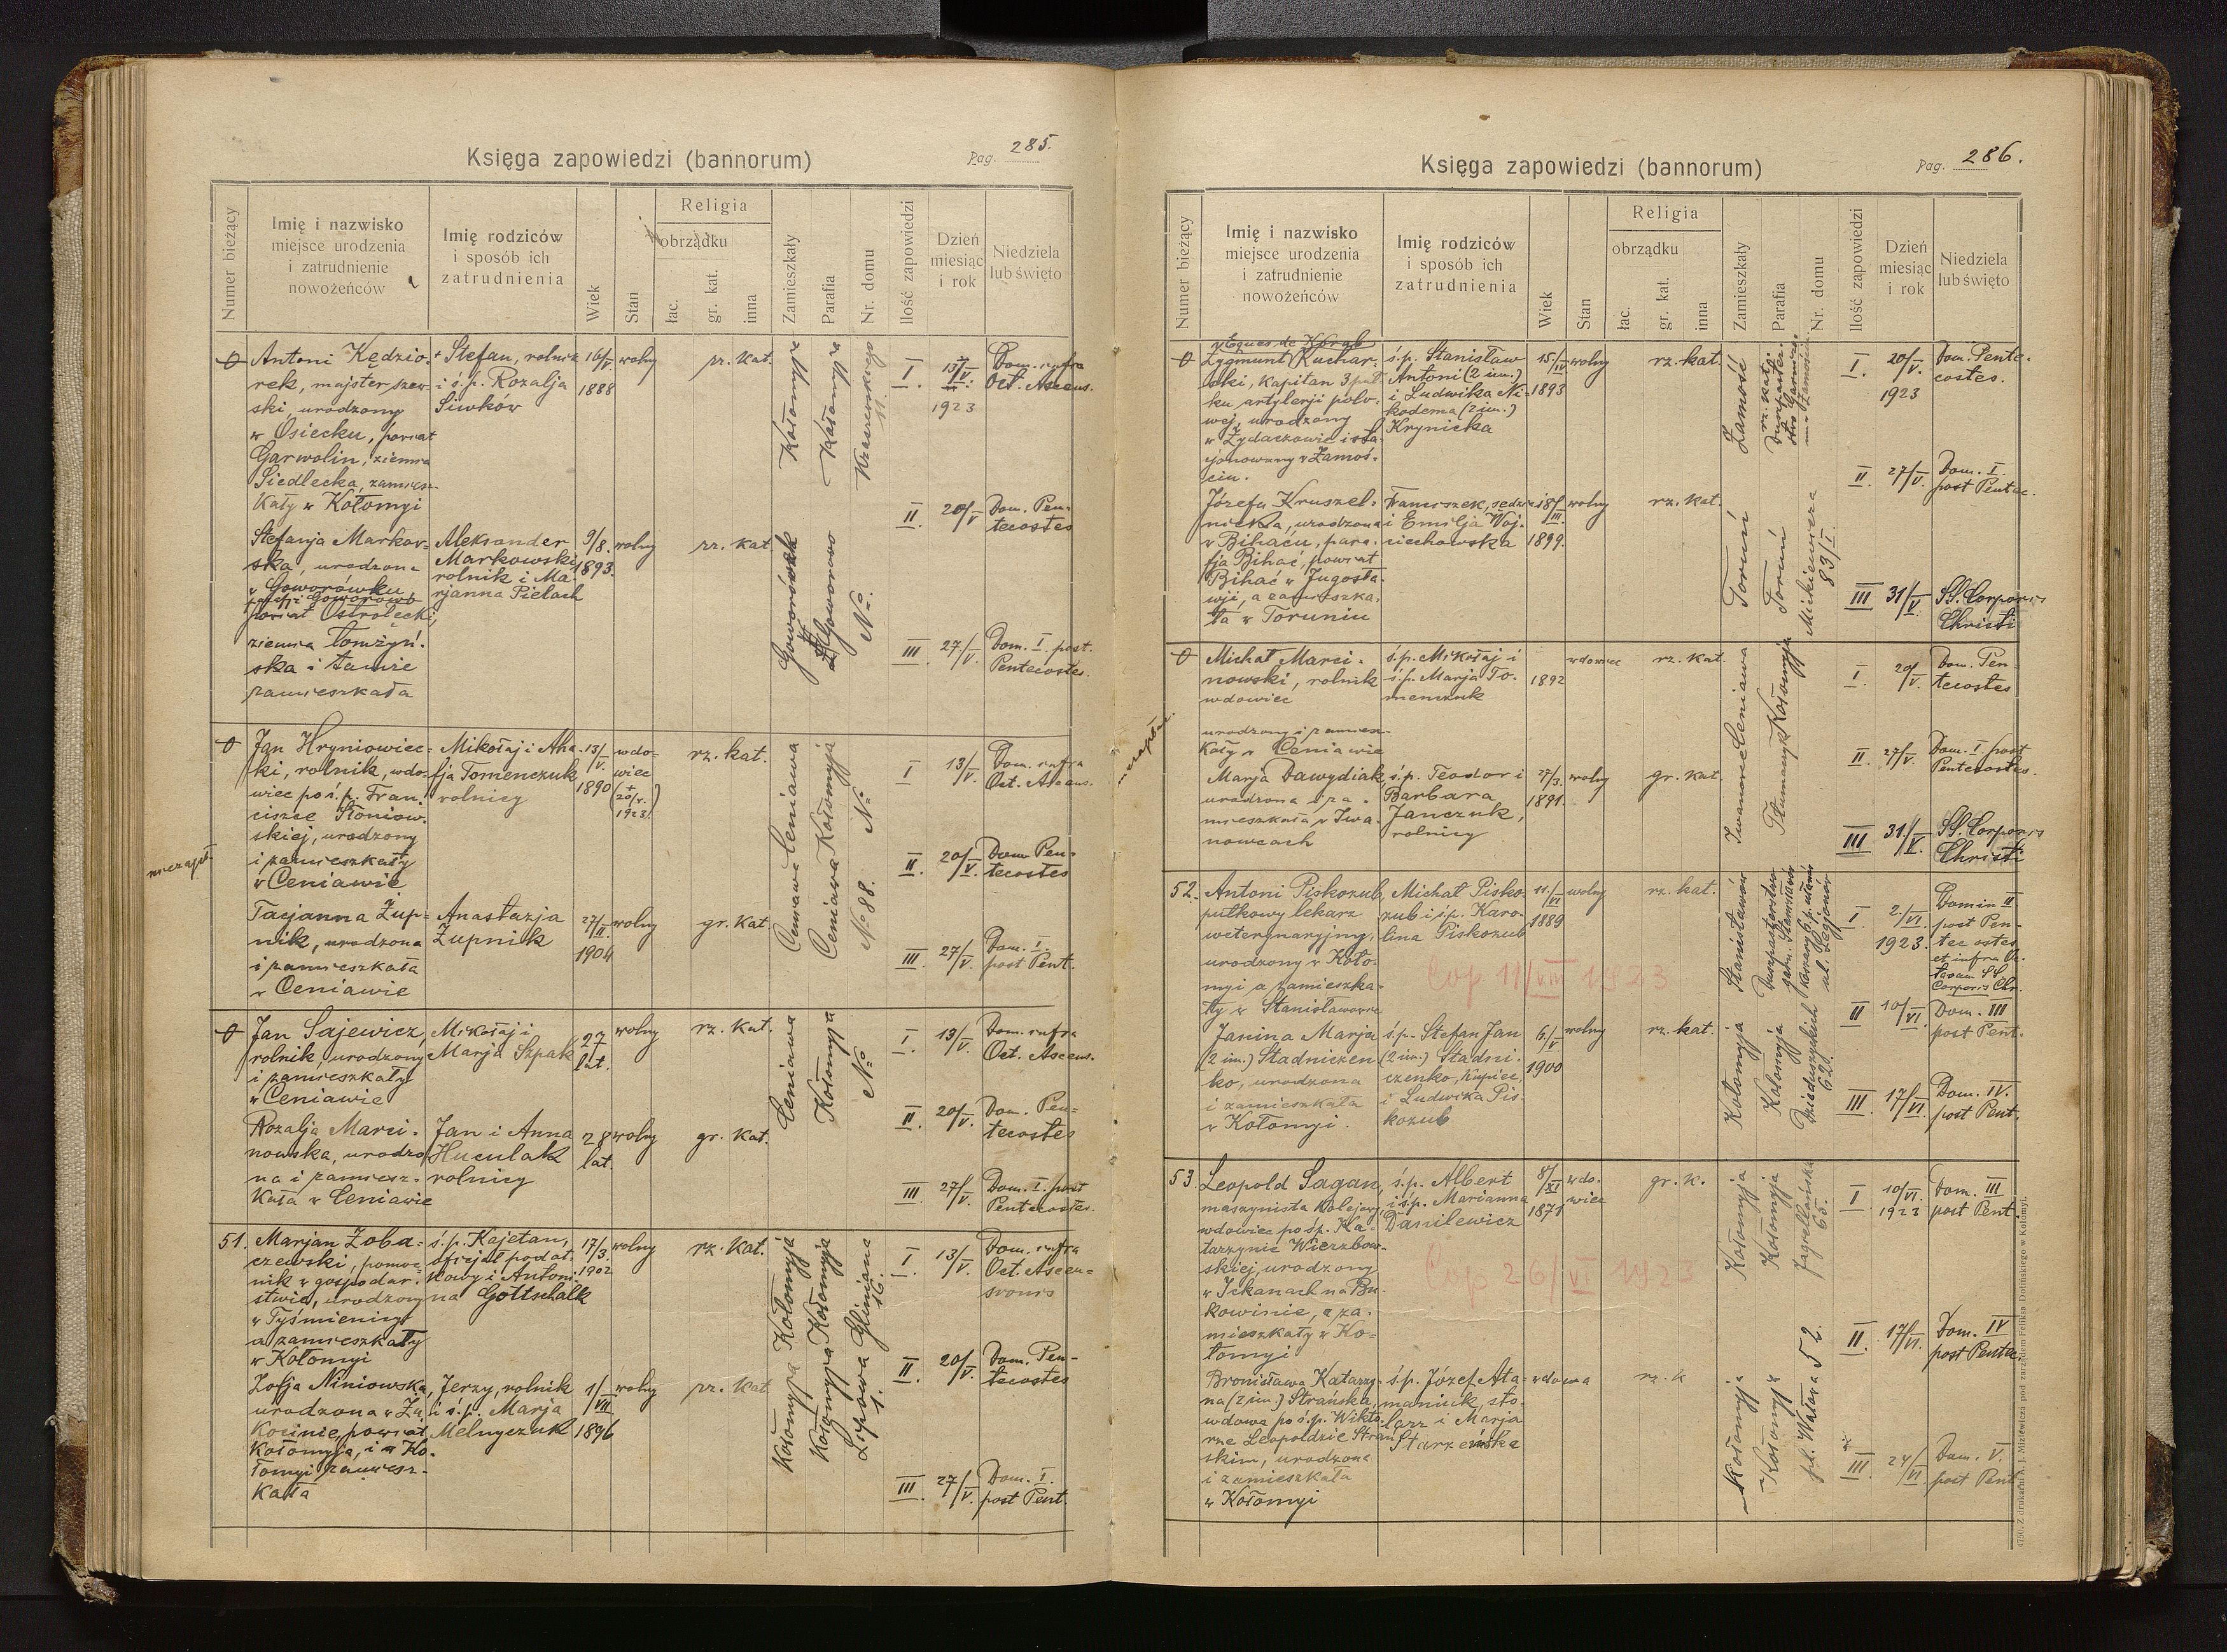 Księga zapowiedzi (bannorum)
Pag. 285.
Numer bieżący
Imię i nazwisko
miejsce urodzenia
i zatrudnienie
nowożeńców
Imię rodziców
i sposób ich
zatrudnienia
Wiek
Stan
Religia
obrządku
łac.
gr. kat.
inna
Zamieszkały
Parafia
Nr. domu
Ilość zapowiedzi
Dzień
miesiąc
i rok
Niedziela
lub święto
Antoni Kędzio-
rek, majster szew-
ski, urodzony
w Osiecku, powiat
Garwolin, ziemia
Siedlecka, zamiesz-
kały w Kołomyi
Stefan, rolnik
i ś.p. Rozalja
Siwków
16/V.
1888
wolny
rz. kat.
Kołomyja
Kołomyja
Kraszewskiego
11.
I. 13/V.
1923
Dom. infra
Oct. Ascens.
II. 20/V
Dom. Pen-
tecostes
III 27/V.
Dom. I. post.
Pentecostes.
Stefanja Markow-
ska, urodzona
w Goworówku
parafji Goworowo
powiat Ostrołęcki,
ziemia Łomżyń-
ska i tamże
zamieszkała
Aleksander
Markowski
rolnik i Ma-
rjanna Pielach
9/8.
1893.
wolny
rz. kat
Goworówek
Goworowo
No.
0 Jan Hryniowiec-
ki, rolnik, wdo-
wiec po ś.p. Fran-
ciszce Słoniow-
skiej, urodzony
i zamieszkały
w Ceniawie
Mikołaj i Aha-
fja Tomenczuk
rolnicy
13/V.
1890
wdo-
wiec
(+
20/V.
1923)
rz. kat.
Ceniawa Ceniawa
Ceniawa Kołomyja
No 88. No.
I 13/V.
Dom. infra
Oct. Ascens.
II. 20/V.
Dom Pen-
tecostes
III 27/V.
Dom. I.
post Pent.
Tacjanna Żup-
nik, urodzona
i zamieszkała
w Ceniawie
Anastazja
Żupnik
27/II.
1904
wolny
gr. kat.
0 Jan Sajewicz,
rolnik, urodzony
i zamieszkały
w Ceniawie
Mikołaj i
Marja Szpak
27
lat.
wolny
rz. kat.
Ceniawa
Kołomyja
No
I. 13/V.
Dom. infra
Oct. Ascens.
II. 20/V.
Dom. Pen-
tecostes
III. 27/V.
Dom. I. post
Pentecostes.
Rozalja Marci-
nowska, urodzo
na i zamiesz-
kała w Ceniawie
Jan i Anna
Huculak
rolnicy
28
lat.
wolny
gr. kat.
51. Marjan Żoba-
czewski, pomoc-
nik w gospodar-
stwie, urodzony
w Tyśmienicy
a zamieszkały
w Kołomyi
ś.p. Kajetan,
oficjał podat-
kowy i Antoni-
na Gottschalk
17/3
1902
wolny
rz. kat.
Kołomyja Kołomyja
Kołomyja Kołomyja
Lipowa Gliniana
1. 16.
I. 13/V.
Dom. infra
Oct. Ascen-
sionis
II. 20/V.
Dom. Pen-
tecostes
III. 27/V.
Dom. I.
post Pent.
Zofja Niniowska,
urodzona w
powiat
Kołomyja, i w Ko-
łomyi zamiesz-
kała
Jerzy, rolnik
i ś.p. Marja
Melnyczuk
1/VII
1896
wolny
rz. kat
Księga zapowiedzi (bannorum)
Pag. 286.
Numer bieżący
Imię i nazwisko
miejsce urodzenia
i zatrudnienie
nowożeńców
Imię rodziców
i sposób ich
zatrudnienia
Wiek
Stan
Religia
obrządku
łac.
gr. kat.
inna
Zamieszkały
Parafia
Nr. domu
Ilość zapowiedzi
Dzień
miesiąc
i rok
Niedziela
lub święto
Eques de Korab
0 Zygmunt Kuchar-
ski, kapitan 3 puł-
ku artylerji polo-
wej, urodzony
w Żydaczowie i sta-
cjonowany w Zamoś-
ciu.
ś.p. Stanisław
Antoni (2 im.)
i Ludwika Ni-
kodema (2 im.)
Krynicka
15/IV
1893
wolny
rz. kat.
Zamość
I. 20/V.
1923
Dom. Pente-
costes.
II. 27/V.
Dom. I.
post Pentec.
III 31/V.
SS. Corporis
Christi
Józefa Kruszel-
nicka, urodzona
w Bihaću, para-
fja Bihać, powiat
Bihać w Jugosła-
wji, a zamieszka-
ła w Toruniu
Franciszek, sędzia
i Emilja Woj-
ciechowska
18/III.
1899.
wolny
rz. kat.
Toruń
Toruń
Mickiewicza
83/I.
0 Michał Marci-
nowski, rolnik
wdowiec
urodzony i zamiesz-
kały w Ceniawie
ś.p. Mikołaj i
ś.p. Marja To-
menczuk
1892
wdowiec
rz. kat.
Iwanowce Ceniawa
Tłumaczyk Kołomyja
I. 20/V.
Dom. Pen-
tecostes
II 27/V.
Dom. I. post
Pentecostes.
III 31/V.
SS. Corporis
Christi
Marja Dawydiak,
urodzona i za-
mieszkała w Iwa-
nowcach
ś.p. Teodor i
Barbara
Janczuk,
rolnicy
27/3.
1891.
wolny
gr. kat.
52. Antoni Piskozub,
pułkowy lekarz
weterynaryjny,
urodzony w Koło-
myi a zamieszka-
ły w Stanisławowie
Michał Pisko-
zub i ś.p. Karo-
lina Piskozub
11/VI
1889
wolny
rz. kat.
Cop 11/VIII 1923
Stanisławów
Duszpasterstwo
garn. Stanisławów
Koszary 6 p. ułanów
ul. Legjonów
I 2./VI.
1923.
Domin II
post Pen-
tecostes
et infra Oc-
tavam SS.
Corporis Chr.
II 10/VI.
Dom. III
post Pent.
III. 17/VI.
Dom. IV.
post Pent.
Janina Marja
(2 im.) Stadniczen-
ko, urodzona
i zamieszkała
w Kołomyi.
ś.p. Stefan Jan
(2 im.) Stadni-
czenko, kupiec,
i Ludwika Pis-
kozub
1900
wolny
rz. kat.
Kołomyja
Kołomyja
Dzieduszyckich
62.
53. Leopold Sagan,
maszynista kolejowy,
wdowiec po ś.p. Ka-
tarzynie Wierzbow-
skiej, urodzony
w Ickanach na Bu-
kowinie, a za-
mieszkały w Ko-
łomyi
ś.p. Albert
i ś.p. Marianna
Danilewicz
8/XI
1871
wdo-
wiec
gr. k.
Cop 26/VI 1923
Kołomyja
Kołomyja
Jagiellońska
65.
I 10/VI.
1923
Dom. III
post Pent.
II. 17/VI.
Dom. IV
post Pente.
III. 24/VI
Dom. V.
post Pent.
Bronisława Katarzy-
na (2 im.) Strańska,
wdowa po ś.p. Wikto-
rze Leopoldzie Strań-
skim, urodzona
i zamieszkała
w Kołomyi
ś.p. Józef Ata-
maniuk, sto-
larz i Marja
Starzeńska
wdowa
rz. k
Kołomyja
Kołomyja
52.
4750. Z drukarni A. J. Miziewicza pod zarządem Feliksa Dolińskiego w Kołomyi.